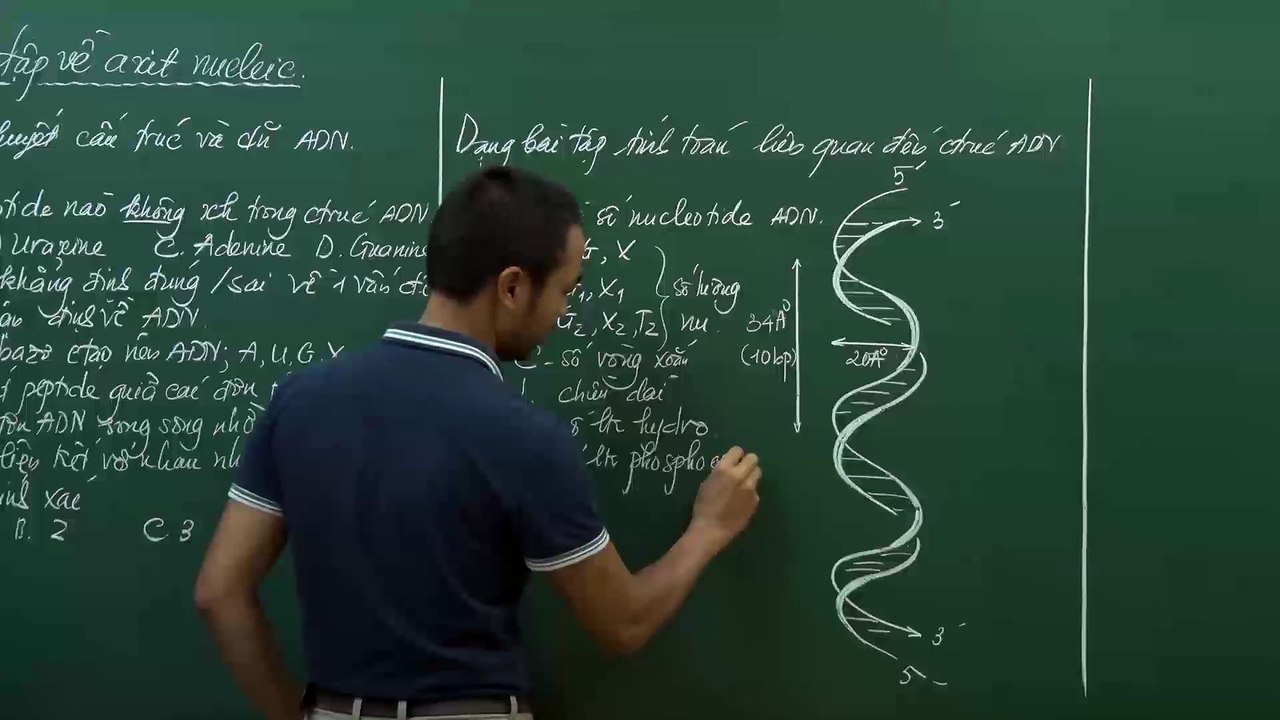 tập về axit nucleic.
thuyết cấu trúc và dũ ADN.
otide nào không xh trong ctrúc ADN
Urazine C. Adenine D. Guanine
khẳng định đúng /sai về 1 vấn đề
định về ADN.
bazơ ctạo nên ADN; A, U, G, X
peptide giữa các đơn
ADN song song nhờ
liên kết với nhau nh
xác
B. 2 C. 3
Dạng bài tập tính toán liên quan đến ctrúc ADN
số nucleotide ADN.
G, X
G1, X1
G2, X2, T2
số lượng
nu.
C - số vòng xoắn
chiều dài
số lk hydro
lk phospho
5'
3'
34A°
(10bp)
20A°
3'
5'